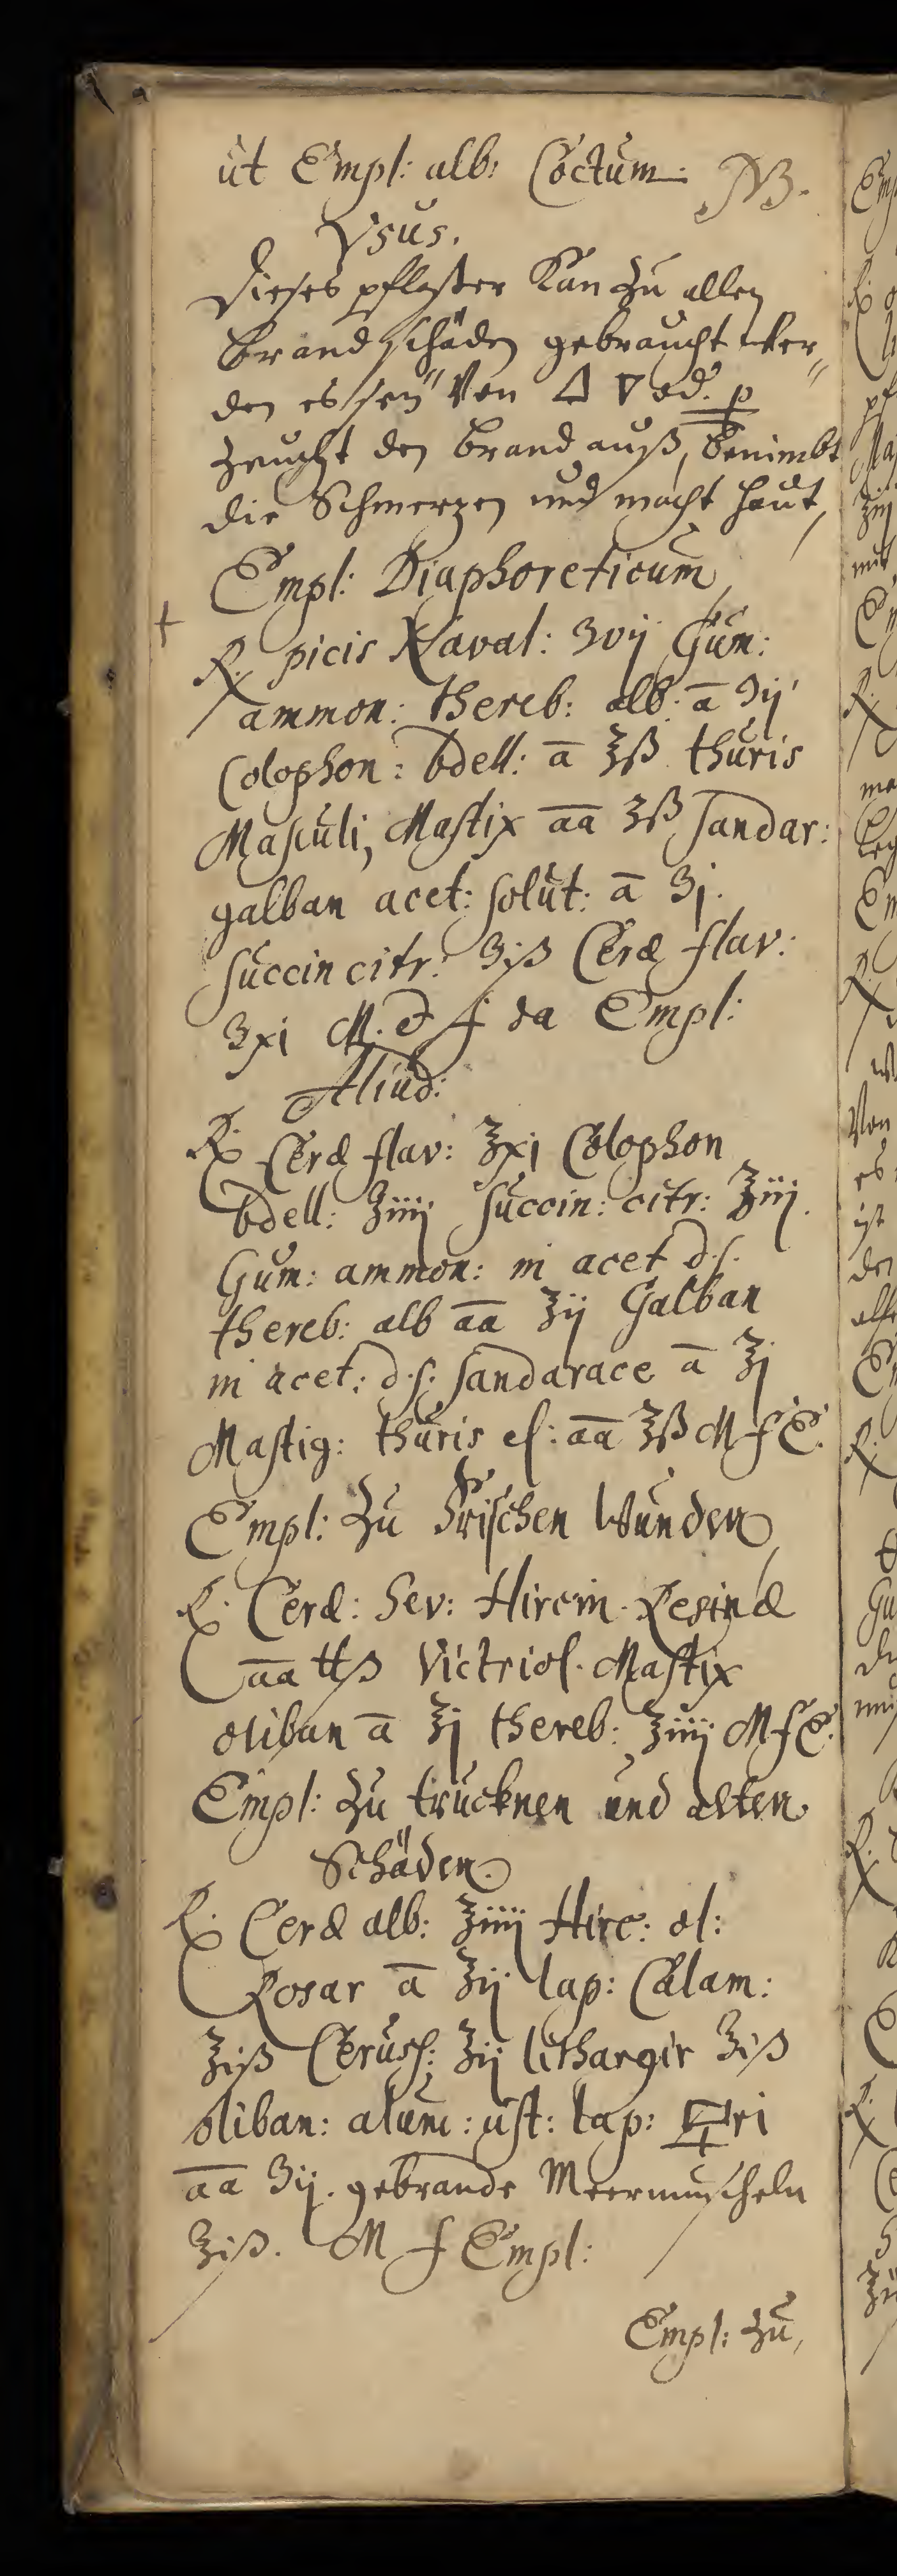 ut Empl: alb: Coctum. NB.
Vsus.
Dieses pflaster Kan zu allen
brand schäden gebraucht wer„
den es seÿ Von 🜂 🜄 od.
zeucht den brand auß, benimbt
die Schmerzen und macht haut,
Empl: Diaphoreticum,
℞. picis Naval: ʒvij Gum:
ammon: thereb: alb: a̅ ʒij
Colophon: bdell: a̅ ℥ß thuris
Masculi, Mastix a̅a̅ ʒß sandar:
galban acet: solut: a̅ ʒj.
succin citr: ʒiß Ceræ flav:
ʒxi M. et f da Empl:
Aliud:
℞. Ceræ flav: ℥xj Colophon
bdell: ℥iiij succin: citr: ℥iij.
Gum: ammon: in acet d.s.
thereb: alb a̅a̅ ℥ij Galban
in acet: d.s: sandarace a̅ ℥j
Mastig: thuris el: a̅a̅ ℥ß M f E.
Empl: Zu Frischen Wunden,
℞. Ceræ: Sev: Hircin. Resinæ
a̅a̅ ℔ß Victriol. Mastix
oliban a̅ ℥j thereb: ℥iiij M f E.
Empl: Zu trucknen und alten
Schäden.
℞. Ceræ alb: ℥iiij Hirc: ol:
Rosar a̅ ℥ij lap: Calam:
℥iß Ceruss: ℥ij lithargir ℥iß
oliban: alum: ust: lap: ri
a̅a̅ ʒij. gebrande Meermuscheln
℥iß. M f Empl:
Empl: Zu,